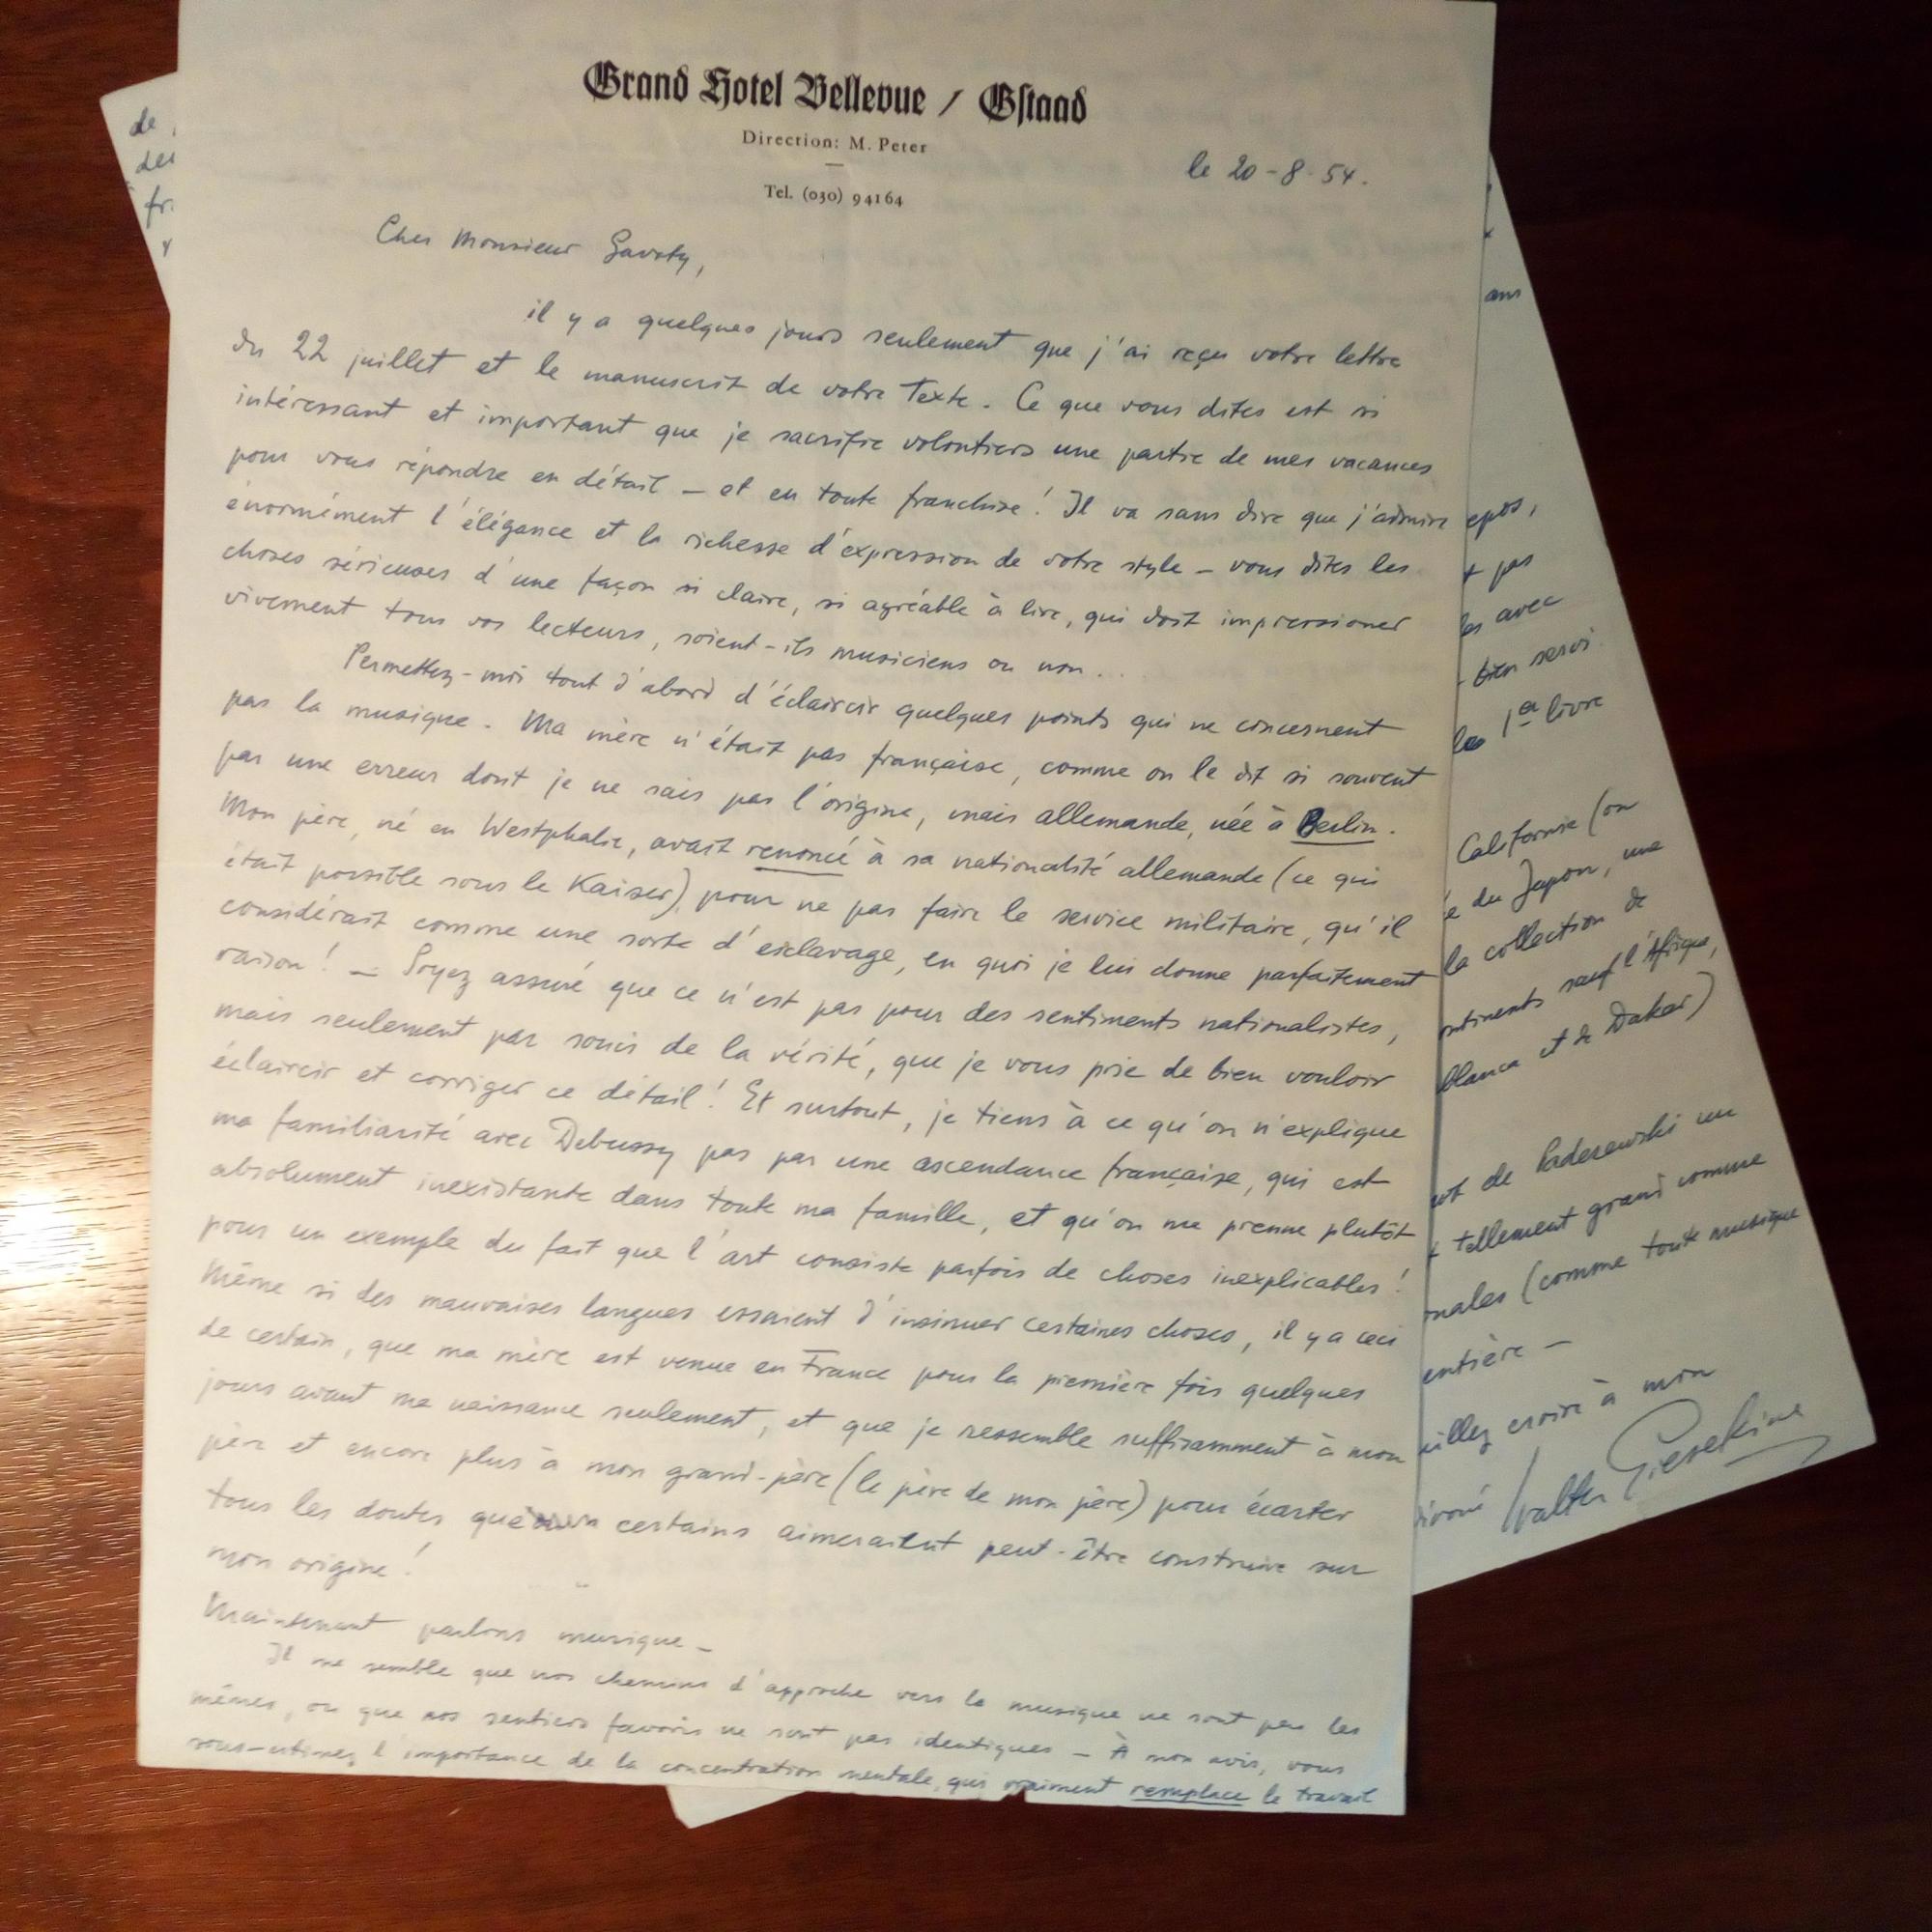 Grand Hotel Bellevue / Gstaad
Direction: M. Peter
Tel. (030) 94164
le 20-8-54.
Cher Monsieur Gavoty,
il y a quelques jours seulement que j'ai reçu votre lettre
du 22 juillet et le manuscrit de votre Texte. Ce que vous dites est si
intéressant et important que je sacrifie volontiers une partie de mes vacances
pour vous répondre en détail – et en toute franchise! Il va sans dire que j'admire
énormément l'élégance et la richesse d'expression de votre style – vous dites les
choses sérieuses d'une façon si claire, si agréable à lire, qui doit impressioner
vivement tous vos lecteurs, soient-ils musiciens ou non...
Permettez-moi tout d'abord d'éclaircir quelques points qui ne concernent
pas la musique. Ma mère n'était pas française, comme on le dit si souvent
par une erreur dont je ne sais pas l'origine, mais allemande, née à Berlin.
Mon père, né en Westphalie, avait renoncé à sa nationalité allemande (ce qui
était possible sous le Kaiser), pour ne pas faire le service militaire, qu'il
considérait comme une sorte d'esclavage, en quoi je lui donne parfaitement
raison! – Soyez assuré que ce n'est pas pour des sentiments nationalistes,
mais seulement par souci de la vérité, que je vous prie de bien vouloir
éclaircir et corriger ce détail! Et surtout, je tiens à ce qu'on n'explique
ma familiarité avec Debussy pas par une ascendance française, qui est
absolument inexistante dans toute ma famille, et qu'on me prenne plutôt
pour un exemple du fait que l'art consiste parfois de choses inexplicables!
Même si des mauvaises langues essaient d'insinuer certaines choses, il y a ceci
de certain, que ma mère est venue en France pour la première fois quelques
jours avant ma naissance seulement, et que je ressemble suffisamment à mon
père et encore plus à mon grand-père (le père de mon père) pour écarter
tous les doutes que certains aimeraient peut-être construire sur
mon origine!
Maintenant parlons musique –
Il me semble que nos chemins d'approche vers la musique ne sont pas les
mêmes, ou que nos sentiers favoris ne sont pas identiques – À mon avis, vous
sous-estimez l'importance de la concentration mentale, qui vraiment remplace le travail
de
des
ans
epos,
pas
les avec
bien servi.
les 1er livre
Californie (on
du Japon, une
la collection de
ontinents sauf l'Afrique,
blanca et de Dakar)
de Paderewski un
tellement grand comme
nales (comme toute musique
entière –
uillez croire à mon
Walter Gieseking